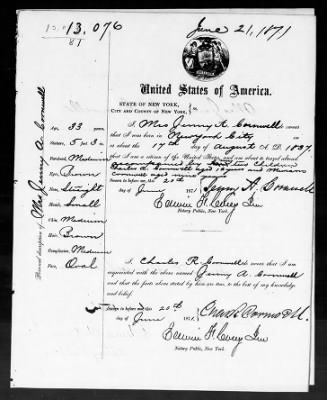 13,076
81
June 21, 1871
United States of America.
STATE OF NEW YORK,
CITY AND COUNTY OF NEW YORK,
I Mrs Jenny A. Cornwell do swear that
I was born in New York City
on or about the 17th day of August A.D. 1837,
that I am a citizen of the United States, and about to travel abroad
accompanied by two children
Charles R. Cornwell aged
Cornwell aged nine years
Sworn to before me, this 20th
day of June 1871
Jenny A. Cornwell
Edwin F. Corey Jr
Notary Public, New York.
I Charles R. Cornwell do swear that I am
acquainted with the above named Jenny A. Cornwell
and that the facts above stated by are true, to the best of my knowledge
and belief.
Sworn to before me this 20th
day of June 1871.
Edwin F. Corey Jr
Notary Public, New York.
Personal description of Mrs Jenny A. Cornwell
Age, 33 years
Stature, 5 ft 3 in
Forehead, Medium
Eyes, Brown
Nose, Straight
Mouth, Small
Chin, Medium
Hair, Brown
Complexion, Medium
Face, Oval